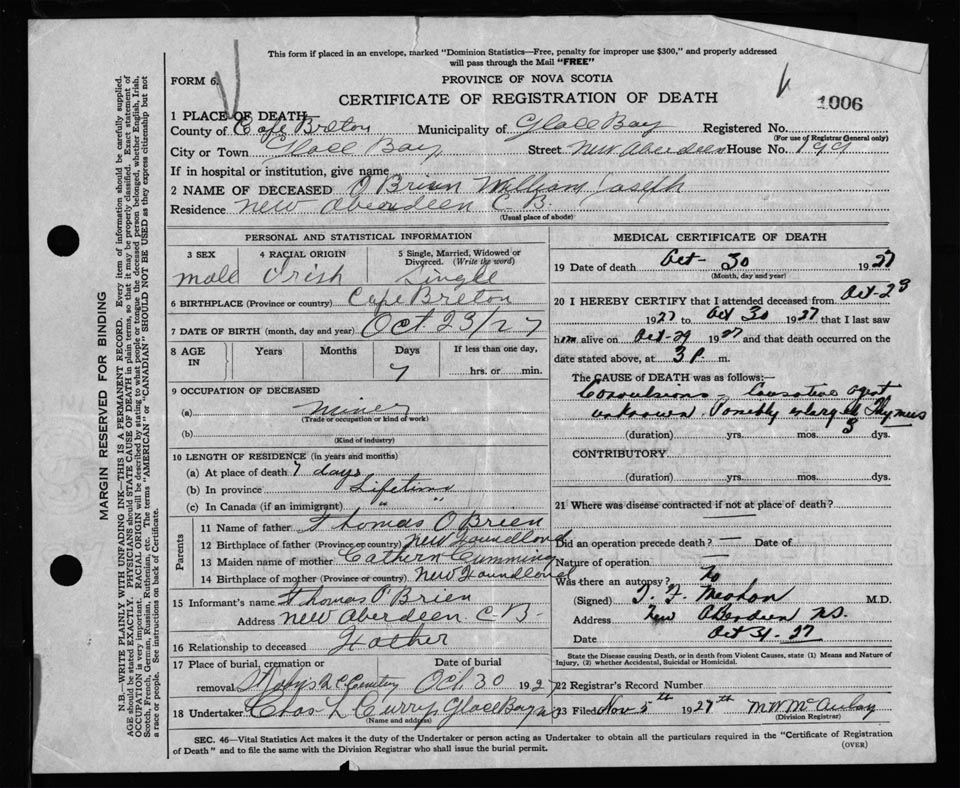 This form if placed in an envelope, marked "Dominion Statistics—Free, penalty for improper use $300," and properly addressed
will pass through the Mail "FREE"
FORM 6.
PROVINCE OF NOVA SCOTIA
CERTIFICATE OF REGISTRATION OF DEATH
1006
1 PLACE OF DEATH
County of Cape Breton Municipality of Glace Bay Registered No.
(For use of Registrar General only)
City or Town Glace Bay Street New Aberdeen House No. 199
If in hospital or institution, give name
2 NAME OF DECEASED O Brien William Joseph
Residence New Aberdeen C. B.
(Usual place of abode)
PERSONAL AND STATISTICAL INFORMATION
3 SEX 4 RACIAL ORIGIN 5 Single, Married, Widowed or
Divorced. (Write the word)
male Irish Single
6 BIRTHPLACE (Province or country) Cape Breton
7 DATE OF BIRTH (month, day and year) Oct 23/27
8 AGE IN Years Months Days If less than one day,
7 hrs. or min.
9 OCCUPATION OF DECEASED
(a) miner
(Trade or occupation or kind of work)
(b)
(Kind of industry)
10 LENGTH OF RESIDENCE (in years and months)
(a) At place of death 7 days
(b) In province Lifetime
(c) In Canada (if an immigrant) " "
Parents
11 Name of father Thomas O Brien
12 Birthplace of father (Province or country) New Foundland
13 Maiden name of mother Cathern Cumming
14 Birthplace of mother (Province or country) New Foundland
15 Informant's name Thomas O'Brien
Address New Aberdeen C-B-
16 Relationship to deceased Father
17 Place of burial, cremation or Date of burial
removal Cemetery Oct. 30 1927
18 Undertaker Chas L Curry Glace Bay NS
(Name and address)
MEDICAL CERTIFICATE OF DEATH
19 Date of death Oct- 30 1927
(Month, day and year)
20 I HEREBY CERTIFY that I attended deceased from Oct-23
1927 to Oct 30 1927 that I last saw
him alive on Oct-29 1927 and that death occurred on the
date stated above, at 3 P. m.
The CAUSE of DEATH was as follows:—
Convulsions. Causative agent
unknown. Possibly enlarged Thymus
(duration) yrs. mos. 3 dys.
CONTRIBUTORY
(duration) yrs. mos. dys.
21 Where was disease contracted if not at place of death?
Did an operation precede death? — Date of
Nature of operation —
Was there an autopsy? No
(Signed) M.D.
Address New Aberdeen N.S.
Date Oct 31-27
State the Disease causing Death, or in death from Violent Causes, state (1) Means and Nature of
Injury, (2) whether Accidental, Suicidal or Homicidal.
22 Registrar's Record Number
23 Filed Nov 5th 1927th M W McAulay
(Division Registrar)
SEC. 46—Vital Statistics Act makes it the duty of the Undertaker or person acting as Undertaker to obtain all the particulars required in the "Certificate of Registration
of Death" and to file the same with the Division Registrar who shall issue the burial permit.
(OVER)
MARGIN RESERVED FOR BINDING
N.B.—WRITE PLAINLY WITH UNFADING INK—THIS IS A PERMANENT RECORD. Every item of information should be carefully supplied.
AGE should be stated EXACTLY. PHYSICIANS should STATE CAUSE OF DEATH in plain terms, so that it may be properly classified. Exact statement of
OCCUPATION is very important. RACIAL ORIGIN will be described by stating to what people or tongue the deceased person belonged, whether English, Irish,
Scotch, French, German, Russian, Ruthenian, etc. The terms "AMERICAN" or "CANADIAN" SHOULD NOT BE USED as they express citizenship but not
a race or people. See instructions on back of Certificate.